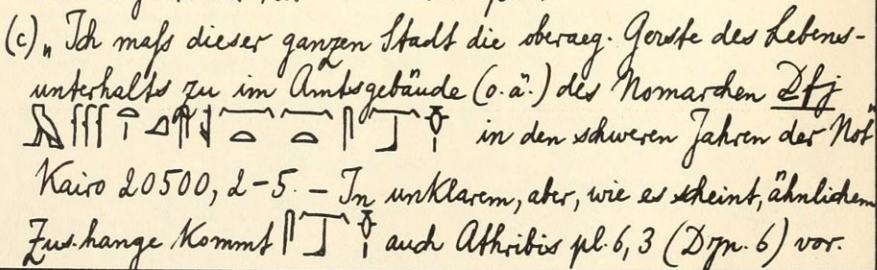 (c) „Ich maß dieser ganzen Stadt die oberaeg. Gerste des Lebens-
unterhalts zu im Amtsgebäude (o. ä.) des Nomarchen Dfj
in den schweren Jahren der Not"
Kairo 20500, 2-5. – In unklarem, aber, wie es scheint, ähnlichem
Zus.hange kommt auch Athribis pl. 6, 3 (Dyn. 6) vor.